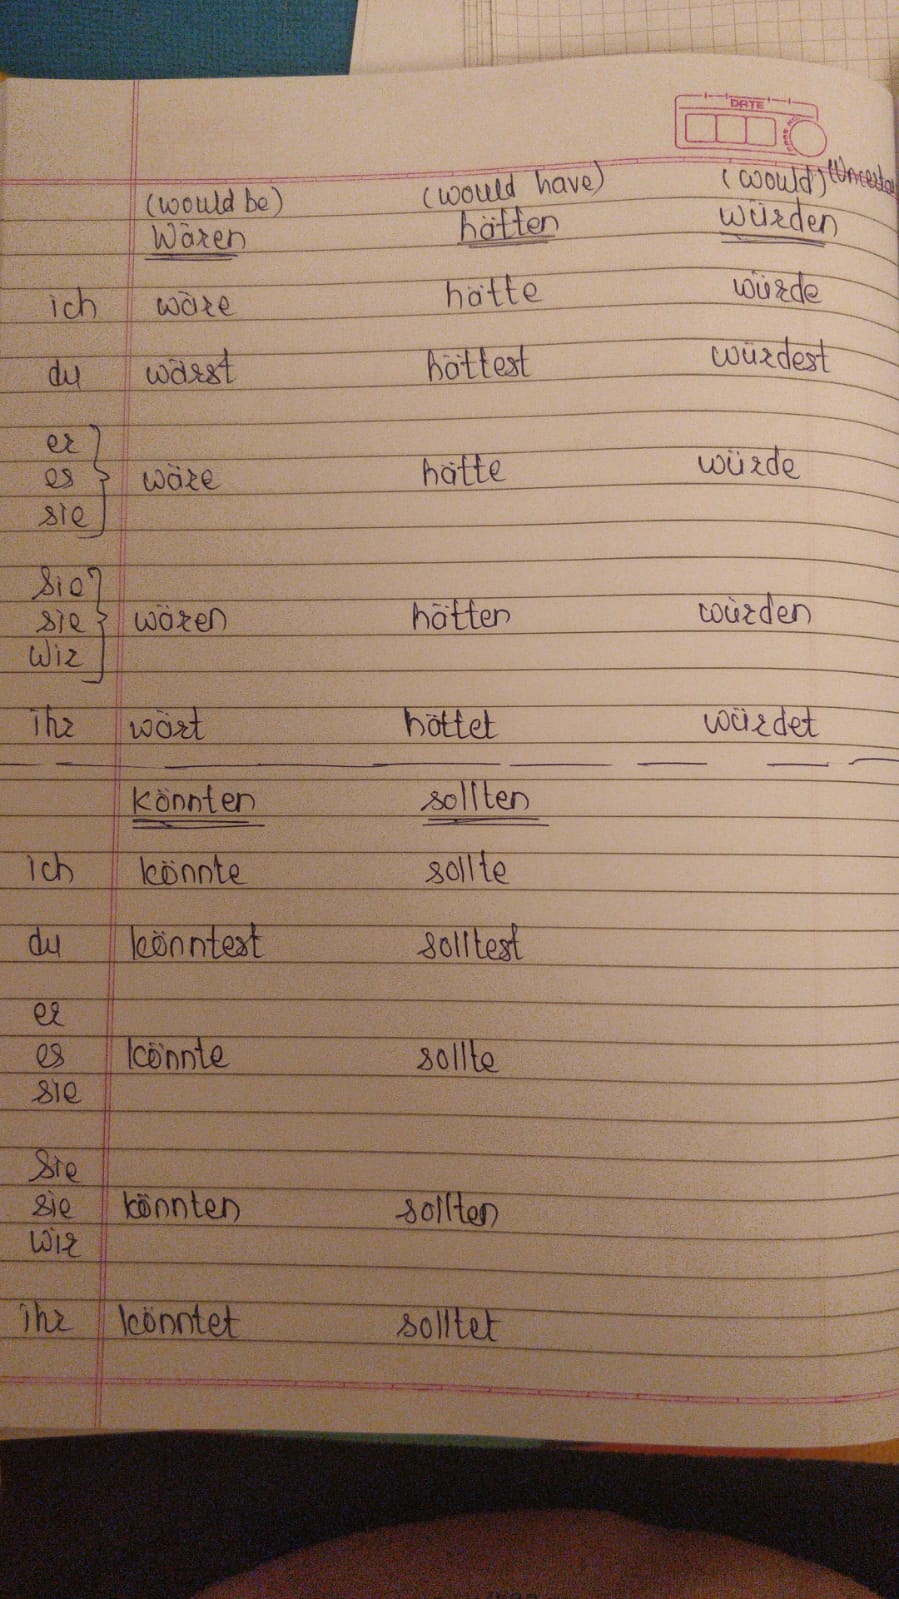 DATE
(would be) (would have) (would)
wären hätten würden
ich wäre hätte würde
du wärst hättest würdest
er
es wäre hätte würde
sie
Sie
sie wären hätten würden
wir
ihr wärt hättet würdet
könnten sollten
ich könnte sollte
du könntest solltest
er
es könnte sollte
sie
Sie
sie könnten sollten
wir
ihr könntet solltet